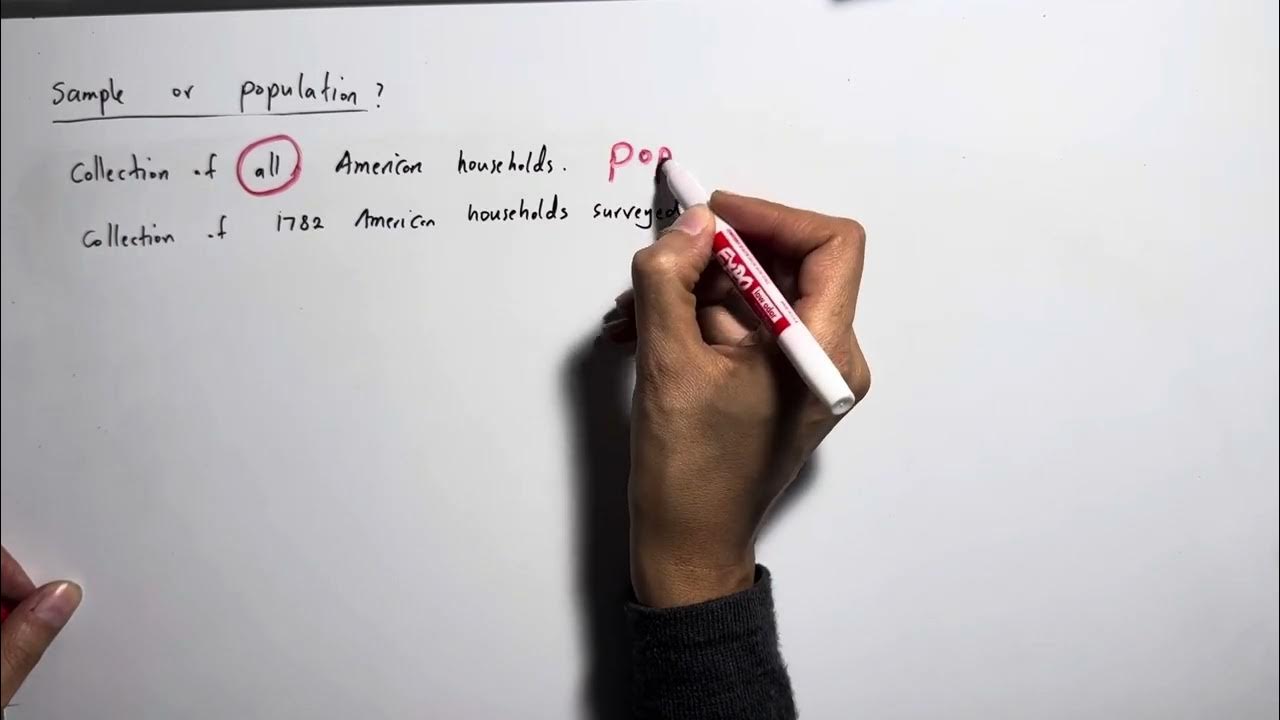 Sample or population?
Collection of all American households. pop
Collection of 1782 American households surveyed
EXPO low odor